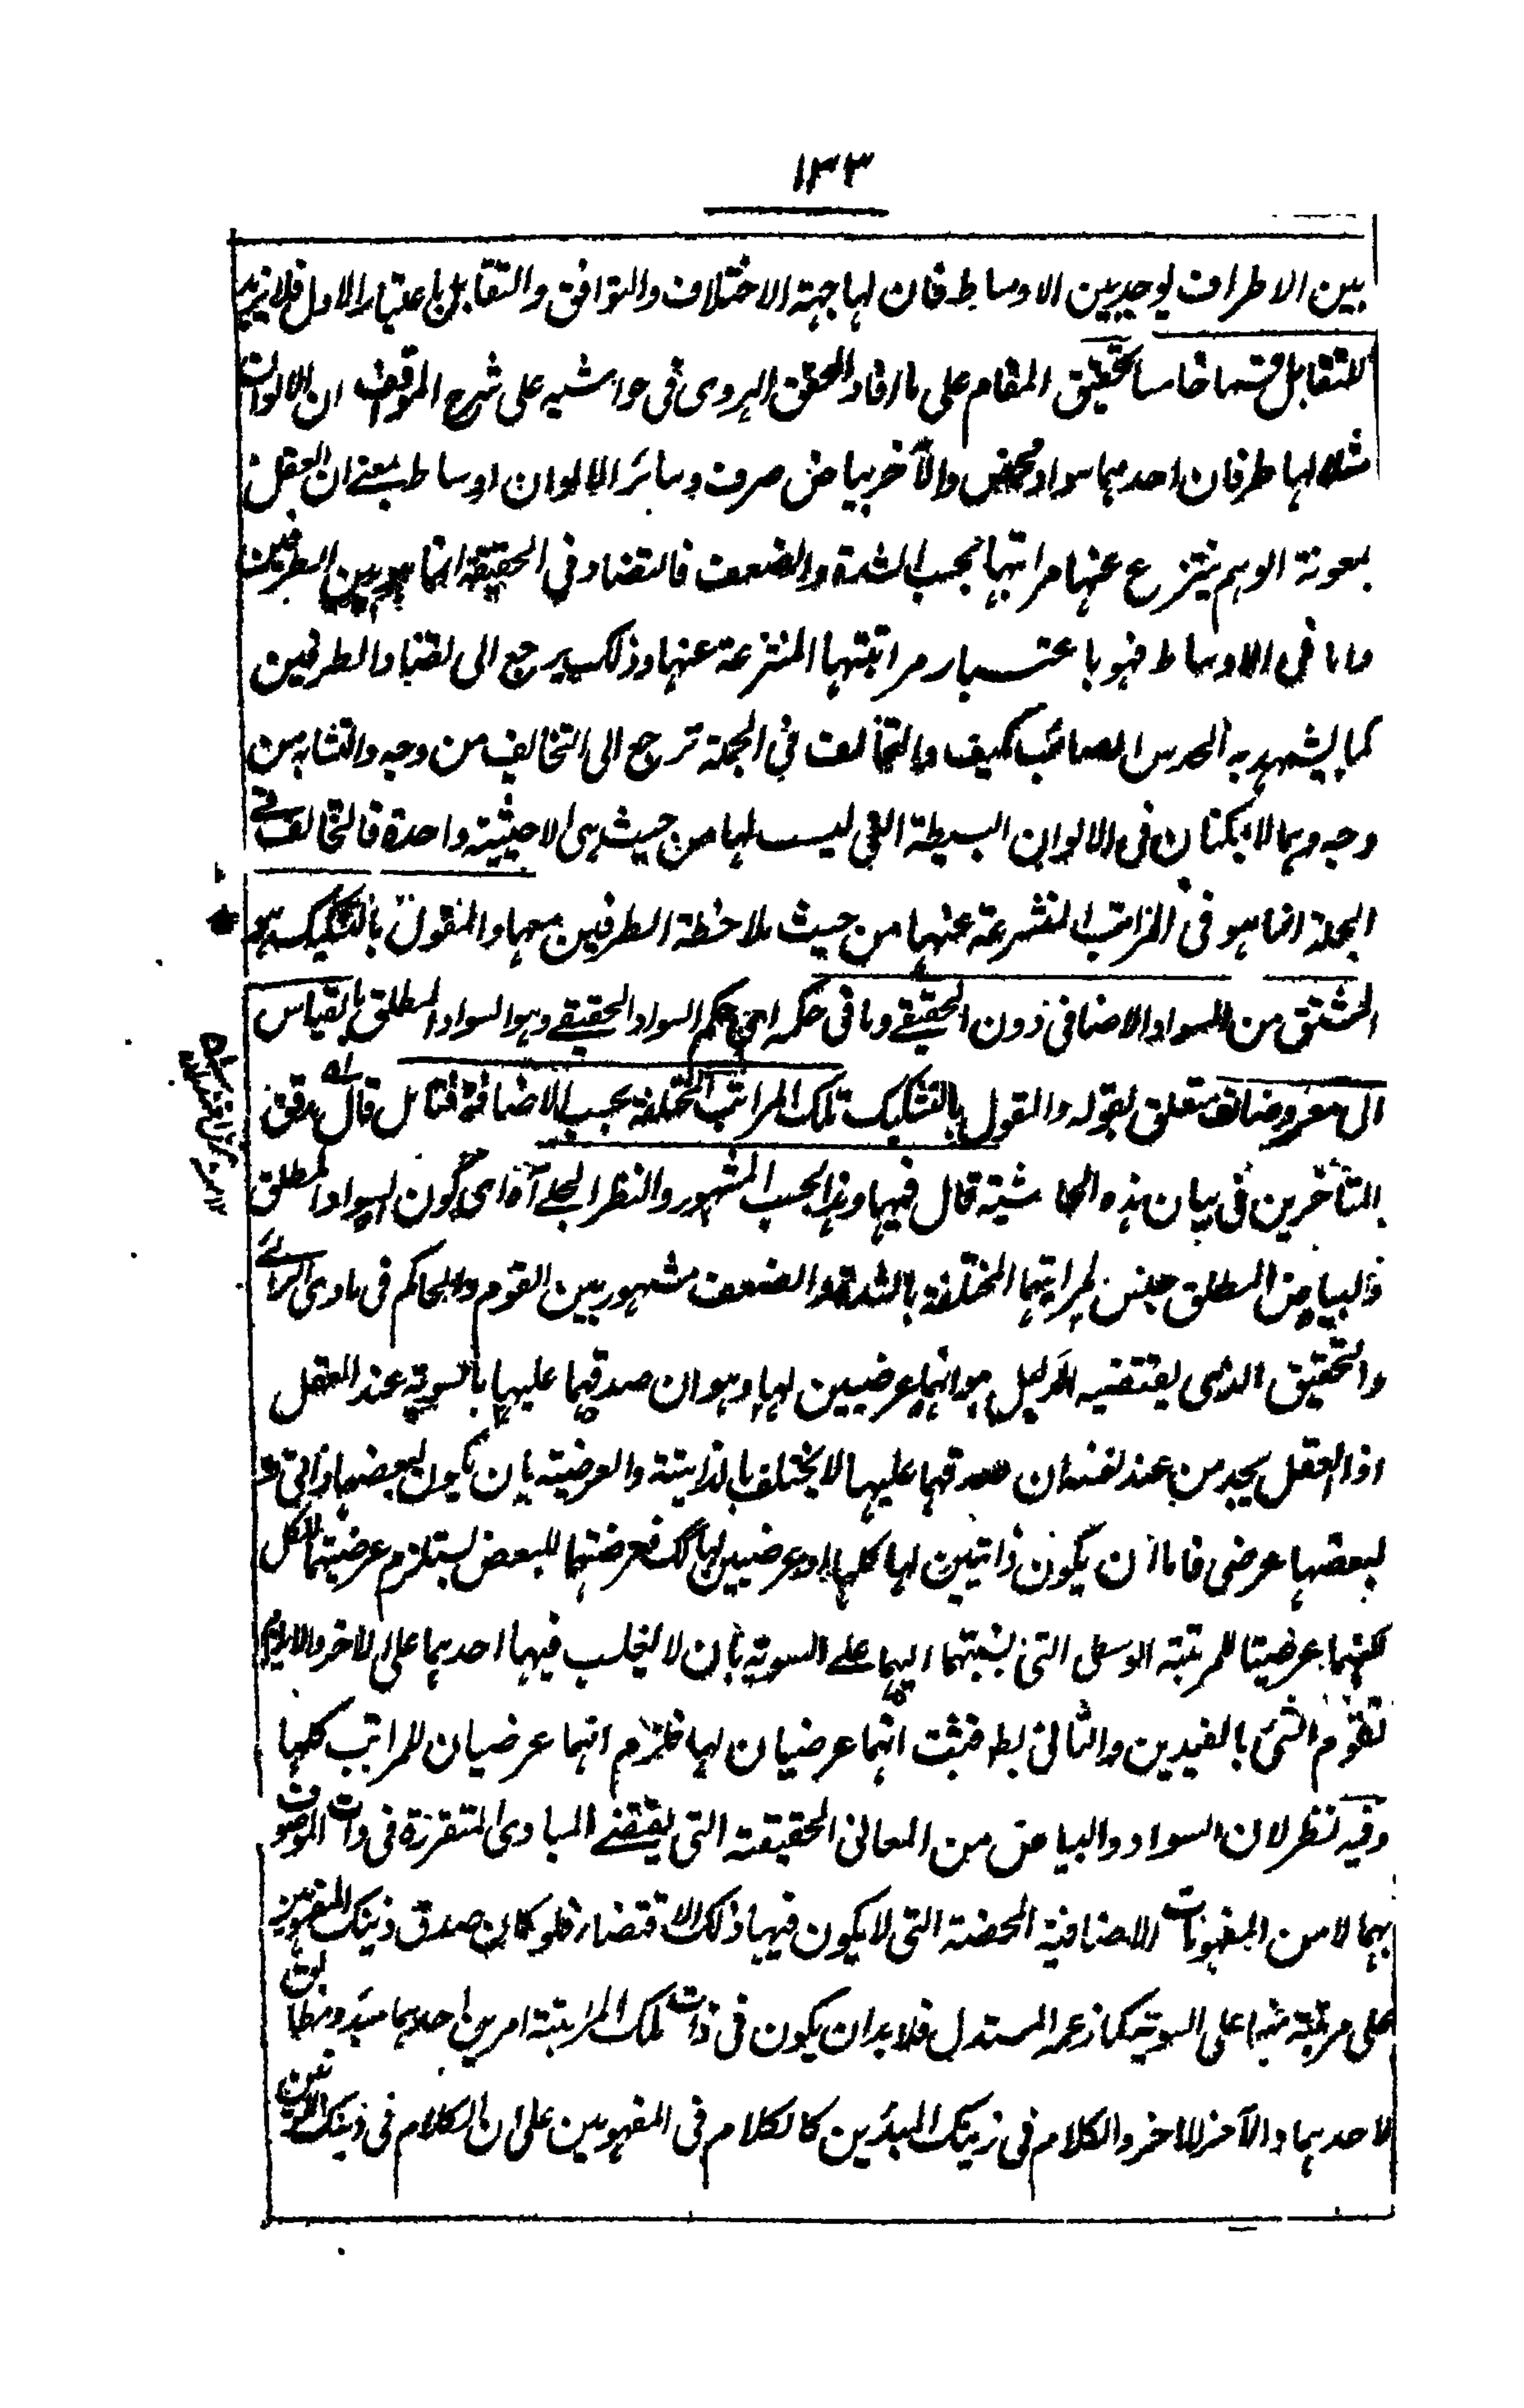 ١٣٣
بين الاطراف يوجد بين الاوساط فان لها جهة الاختلاف والتوافق والتقابل باعتبار الاول فلا يزيد
للتقابل قسما خامسا تحقيق المقام على ما افاد المحقق الهروى فى حواشيه على شرح المواقف ان الالوان
مثلا لها طرفان احدهما سواد محض والآخر بياض صرف وسائر الالوان اوساط بمعنے ان العقل
بمعونة الوهم ينتزع عنها مراتبها بحسب الشدة والضعف فالتضاد فى الحقيقة انما هو بين الطرفين
واما فى الاوساط فهو باعتبار مراتبتها المنتزعة عنها وذلك يرجع الى تضاد الطرفين
كما يشهد به الحدس الصائب كيف والتخالف فى الجملة ترجع الى التخالف من وجه والتشابه من
وجه وهما لا يمكنان فى الالوان البسيطة التى ليست لها من حيث هى الا حيثية واحدة فالتخالف فے
الجملة انما هو فى المراتب المنتزعة عنها من حيث ملاحظة الطرفين معها والمقول بالتشكيك هو
المشتق من السواد الاضافى دون الحقيقے وما فى حكمه اى حكم السواد الحقيقے وهو السواد المطلق بالقياس
الى معروضاته متعلق بقوله والمقول بالتشكيك تلك المراتب المختلفة بحسب الاضافة فتامل قال مدقق
المتأخرين فى بيان هذه الحاشية قال فيها وهذا بحسب المشهور والنظر الجلے آه اى كون السواد المطلق
والبياض المطلق جنس لمراتبهما المختلفة بالشدة والضعف مشهور بين القوم والحاكم فى بادى الرائے
والتحقيق الذى يقتضيه الدليل هو انهما عرضيين لها وهو ان صدقهما عليها بالسوية عند العقل
اذ العقل يجد من عند نفسه ان صدقهما عليها لا يختلف بالذاتية والعرضية بان يكون لبعضها ذاتى و
لبعضها عرضى فاما ان يكون ذاتيين لها كلها او عرضيين لها كك فعرضيتهما للبعض يستلزم عرضيتهما للكل
لكنهما عرضيتا للمرتبة الوسطى التى نسبتهما اليهما علے السوية بان لا يغلب فيها احدهما على الاخر والا يلزم
تقوم الشئ بالضدين والثانى بط فثبت انهما عرضيان لها فلزم انهما عرضيان للمراتب كلها
وفيه نظر لان السواد والبياض من المعانى الحقيقية التى يقتضے المبادى المتقررة فى ذات الموصوف
بهما لا من المفهومات الاضافية المحضة التى لا يكون فيها ذلك الاقتضاء فلو كان صدق ذينك المفهومين
على مرتبة منها على السوية كما زعمه المستدل فلا بد ان يكون فى ذات تلك المرتبة امرين احدهما مبدء ومطابق
لاحدهما والآخر للاخر والكلام فى ذينك المبدئين كالكلام فى المفهومين على ان الكلام فى ذينك